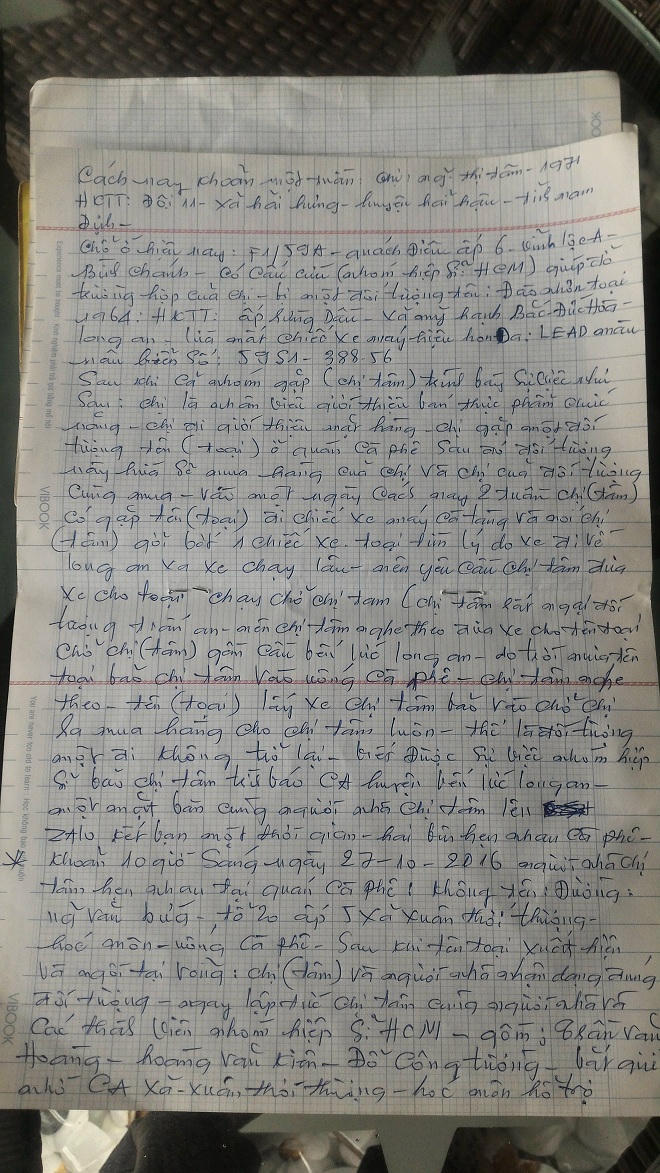 Cách nay khoản một tuần: chị: ng. thị tâm - 1971
HKTT: Đội 11 - xã hải hưng - huyện hải hậu - tỉnh nam
Định -
chỗ ở hiện nay: F1/59A - quách Điêu ấp 6 - vĩnh lộc A -
Bình chánh - có cầu cứu (nhóm hiệp sĩ HCM) giúp đỡ
trường hợp của chị - bị một đối tượng tên: Đào nhơn toại
1964: HKTT: ấp Hưng Dầu - xã mỹ hạnh Bắc Đức Hòa -
long an - lừa mất chiếc xe máy hiệu honDa: LEAD màu
nâu biển số: 59S1 - 388.56
Sau khi cả nhóm gặp (chị tâm) trình bày sự việc như
Sau: chị là nhân viên giới thiệu bán thực phẩm chức
năng - chị đi giới thiệu mặt hàng - chị gặp một đối
tượng tên (toại) ở quán cà phê sau đó đối tượng
này hứa sẽ mua hàng của chị và chị của đối tượng
cũng mua - vào một ngày cách nay 2 tuần chị (tâm)
có gặp tên (toại) đi chiếc xe máy cà tàng và nói chị
(tâm) gởi bớt 1 chiếc xe. toại tìm lý do xe đi về
long an xa xe chạy lâu - nên yêu cầu chị tâm đưa
xe cho toại chạy chở chị tâm (chị tâm rất ngại đối
tượng trấn an - nên chị tâm nghe theo đưa xe cho tên toại
chở chị (tâm) gần cầu bến lức long an - do trời mưa tên
toại bảo chị tâm vào uống cà phê - chị tâm nghe
theo - tên (toại) lấy xe chị tâm bảo vào chở chị
ra mua hàng cho chị tâm luôn - thế là đối tượng
một đi không trở lại - biết được sự việc nhóm hiệp
sĩ bảo chị tâm trình báo CA huyện bến lức long an -
một mặt bàn cùng người nhà chị tâm lên
zalo kết bạn một thời gian - hai bên hẹn nhau cà phê -
* khoản 10 giờ sáng ngày 27 - 10 - 2016 người nhà chị
tâm hẹn nhau tại quán cà phê: không tên: Đường:
ng văn bứa - tổ 20 ấp 5 xã xuân thới thượng -
hóc môn - uống cà phê - sau khi tên toại xuất hiện
và ngồi tại vong: chị (tâm) và người nhà nhận dạng đúng
đối tượng - ngay lập tức chị tâm cùng người nhà và
các thành viên nhóm hiệp sĩ HCM - gồm: trần văn
Hoàng - hoàng văn kiên - Đỗ công tường - bắt giữ
nhờ CA xã - xuân thới thượng - hóc môn hỗ trợ
VIBOOK
VIBOOK